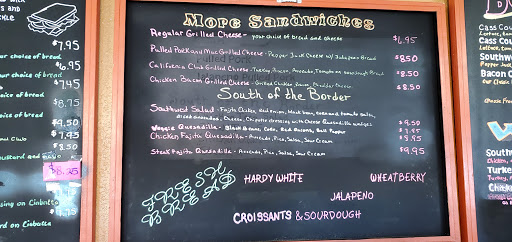 and
ckle
$7.95
ur choice of bread
$6.95
our choice of bread
$7.45
oice of bread
$8.75
oice of bread
$9.50
$7.50
$8.50
ustard and mayo
$8.25
sing on Ciabatta
rd on Ciabatta
More Sandwiches
Regular Grilled Cheese - your choice of bread and cheese $6.95
Pulled Pork and Mac Grilled Cheese - Pepper Jack Cheese w/ Jalapeno Bread $8.50
California Club Grilled Cheese - Turkey, Bacon, Avocado, Tomato on Sourdough Bread $8.50
Chicken Bacon Grilled Cheese - Grilled Chicken, Bacon, Cheddar Cheese $8.50
South of the Border
Southwest Salad - Fajita Chicken, Red onion, black bean, corn and tomato salsa,
diced avocados, Cheese, Chipotle dressing with Cheese Quesadilla wedges $9.50
Veggie Quesadilla - Black Beans, Corn, Red Onions, Bell Pepper
Chicken Fajita Quesadilla - Avocado, Pico, Salsa, Sour Cream
Steak Fajita Quesadilla - Avocado, Pico, Salsa, Sour Cream $9.95
FRESH
BREAD
HARDY WHITE
WHEATBERRY
JALAPENO
CROISSANTS & SOURDOUGH
Cass Coun
Cass Cou
Lettuce, tom
Southw
Pepper Jack
Bacon C
South
Chicken
Turke
Turkey
Chicke